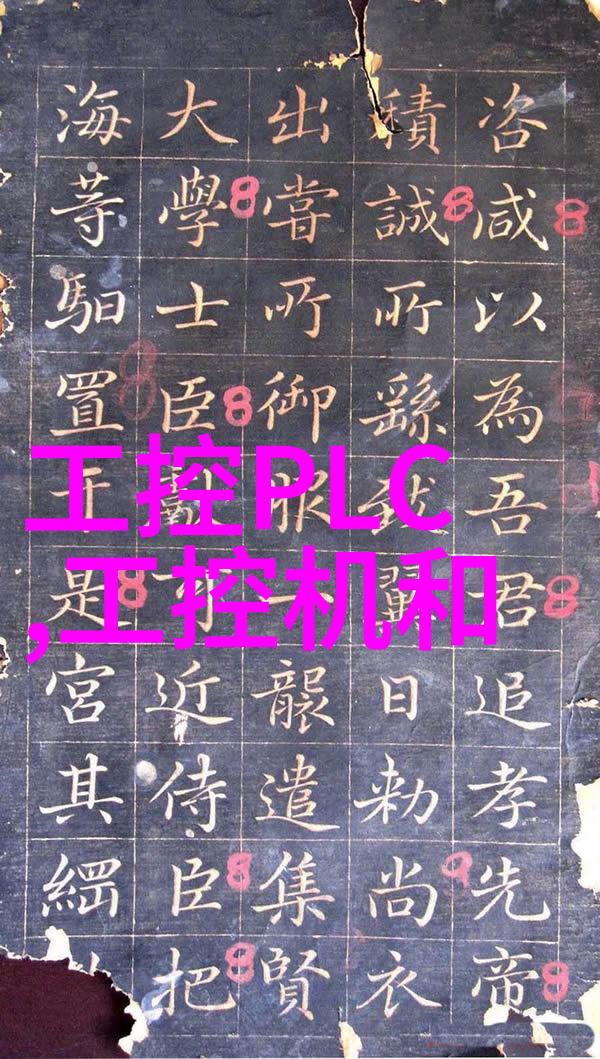 咨咸以為吾君追孝先帝
積誠所繇翼日勅尚衣
出嘗所御服一襲遣集賢
大學士臣近侍臣把
海等馹置于是宮其
工控PLC
,工控机和